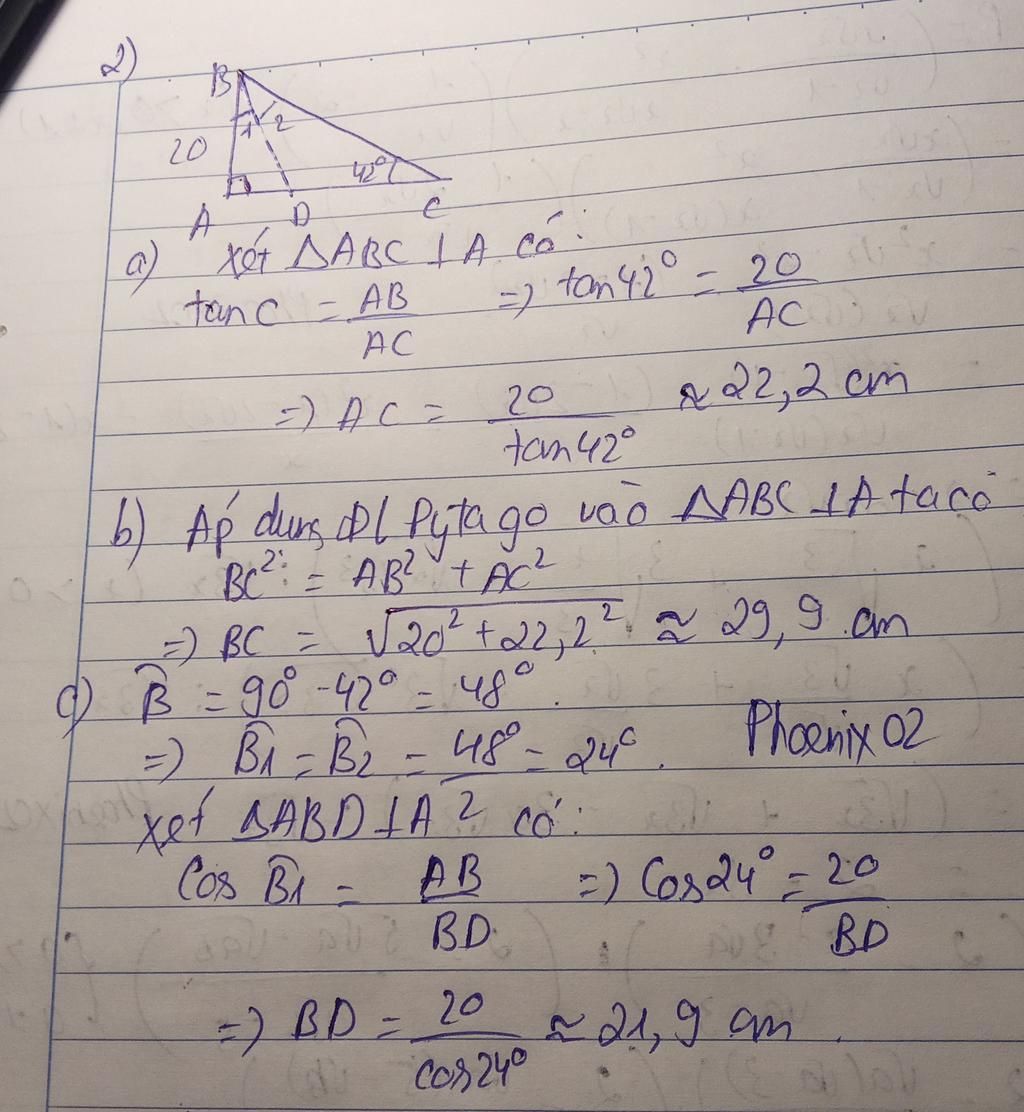 2)
B
1 2
20
42°
A D C
a) xét ΔABC ⊥ A có:
tan C = AB/AC => tan 42° = 20/AC
=> AC = 20/tan 42° ≈ 22,2 cm
b) Áp dụng ĐL Pytago vào ΔABC ⊥ A ta có
BC²: = AB² + AC²
=> BC = √(20² + 22,2²) ≈ 29,9 cm
c) B̂ = 90° - 42° = 48°.
=> B̂1 = B̂2 = 48°/2 = 24°. Phoenix02
xét ΔABD ⊥ A có:
Cos B̂1 = AB/BD => Cos 24° = 20/BD
=> BD = 20/cos 24° ≈ 21,9 cm.